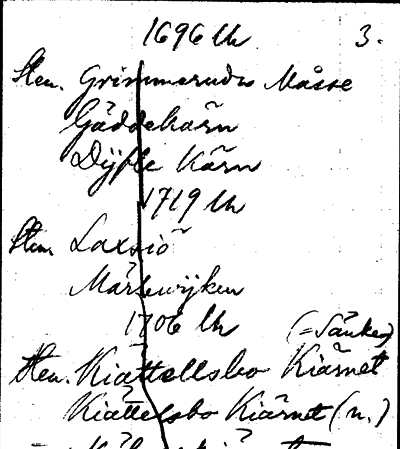 1696 Uh 3.
Sten. Grimmerudz Måsse
Gäddekärn
Dÿfle Kärn
1719 Uh
Sten Laxsiö
Märkwijken
1706 Uh (=Sänkes)
Sten. Kiättellsbo Kiärnet
Kiättelsbo Kiärnet (n.)